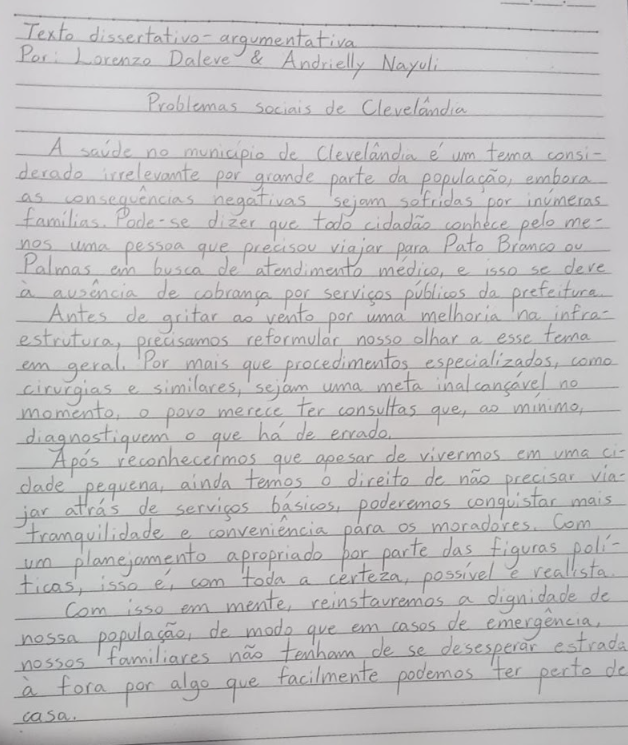 Texto dissertativo-argumentativa
Por: Lorenzo Daleve & Andrielly Nayuli
Problemas sociais de Clevelândia
A saúde no município de Clevelândia é um tema consi-
derado irrelevante por grande parte da população, embora
as consequências negativas sejam sofridas por inúmeras
famílias. Pode-se dizer que todo cidadão conhece pelo me-
nos uma pessoa que precisou viajar para Pato Branco ou
Palmas em busca de atendimento médico, e isso se deve
à ausência de cobrança por serviços públicos da prefeitura.
Antes de gritar ao vento por uma melhoria na infra-
estrutura, precisamos reformular nosso olhar a esse tema
em geral. Por mais que procedimentos especializados, como
cirurgias e similares, sejam uma meta inalcançável no
momento, o povo merece ter consultas que, ao mínimo,
diagnostiquem o que há de errado.
Após reconhecermos que apesar de vivermos em uma ci-
dade pequena, ainda temos o direito de não precisar via-
jar atrás de serviços básicos, poderemos conquistar mais
tranquilidade e conveniência para os moradores. Com
um planejamento apropriado por parte das figuras polí-
ticas, isso é, com toda a certeza, possível e realista.
Com isso em mente, reinstauremos a dignidade de
nossa população, de modo que em casos de emergência,
nossos familiares não tenham de se desesperar estrada
à fora por algo que facilmente podemos ter perto de
casa.